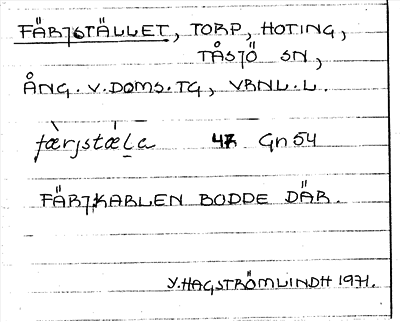 FÄRJSTÄLLET, TORP, HOTING,
TÅSJÖ SN,
ÅNG. V. DOMS. TG, VBNL. L.
færjstæla 47 Gn 54
FÄRJKARLEN BODDE DÄR.
Y. HAGSTRÖMLINDH 1971.